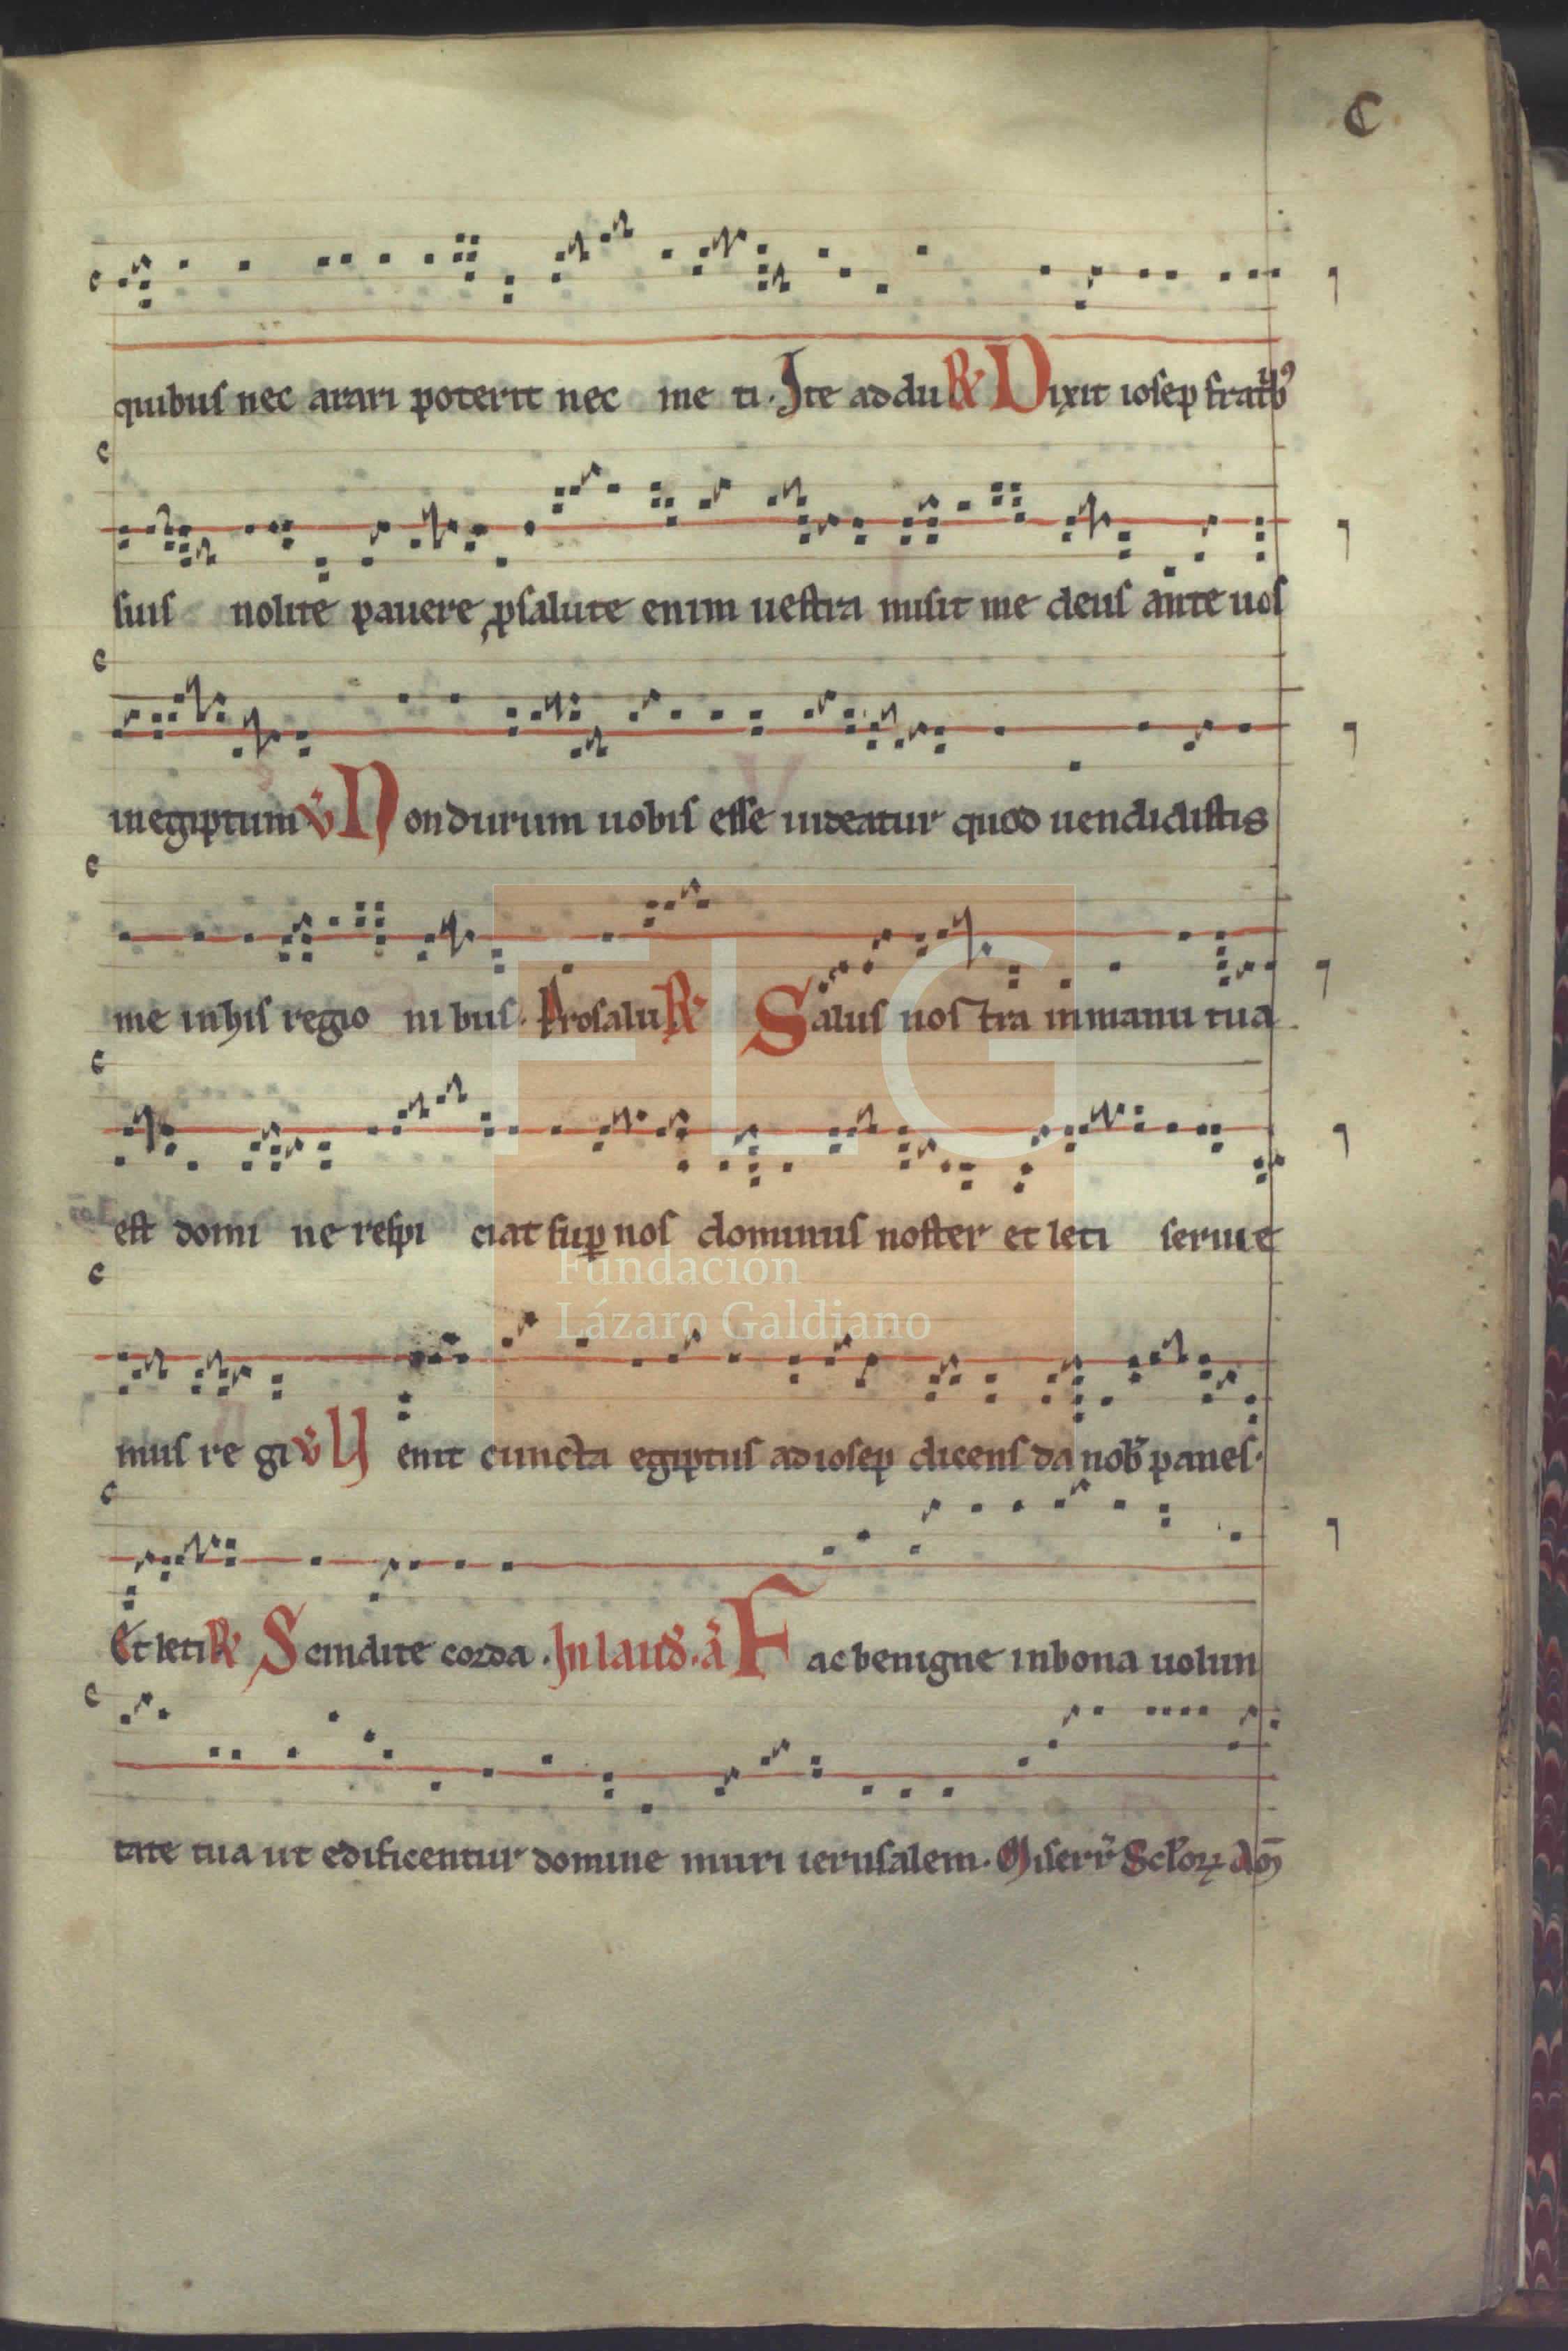 C
quibus nec arari poterit nec me ti. Ite addu ℟ Dixit iosep fratribꝰ
suis nolite pauere ꝓsalute enim uestra misit me deus ante uos
inegiptum ℣ Non durum uobis esse uideatur quod uendidistis
me inhis regio nibus. Prosalu ℟ Salus nos tra inmanu tua
est domi ne respi ciat suꝑ nos dominus noster et leti seruie
mus re gi ℣ Uenit cuncta egiptus adiosep dicens da nob̄ panes.
Et leti ℟ Scindite corda. In laud̄. ā Fac benigne inbona uolun
tate tua ut edificentur domine muri ierusalem. Miserr̄
Fundación
Lázaro Galdiano
FLG